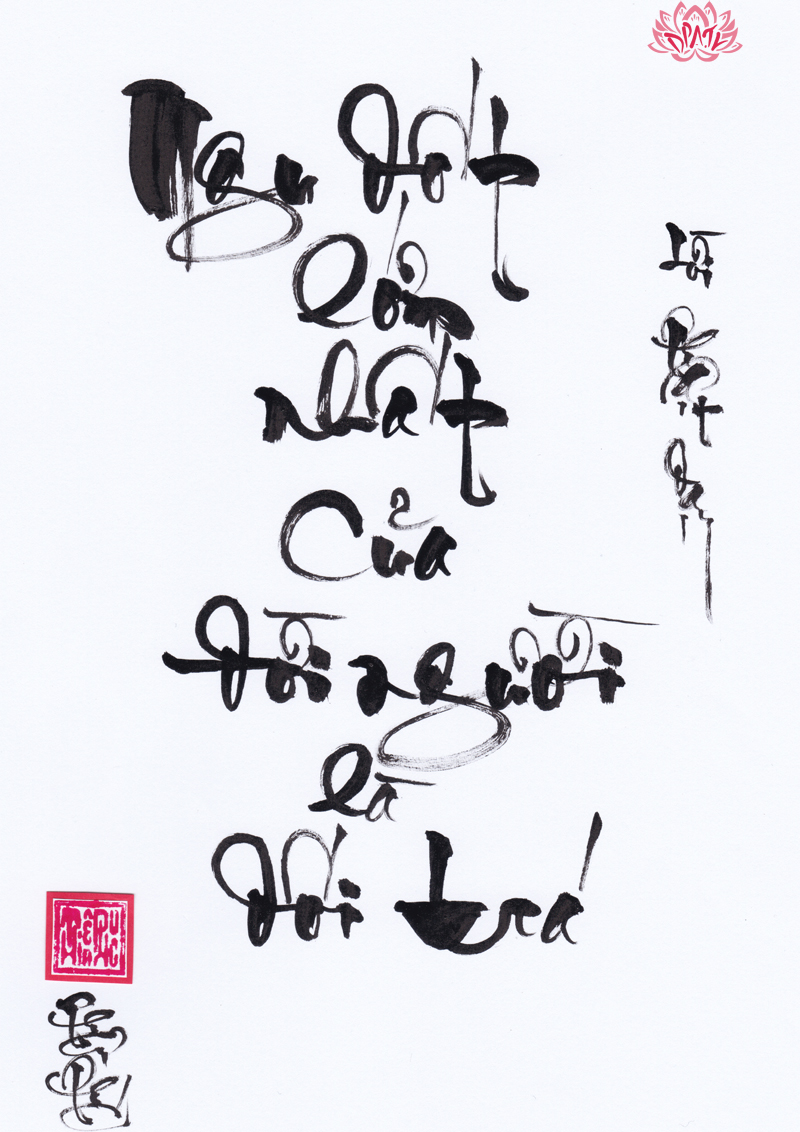 Ngu dốt
lớn
nhất
Của
Đời người
là
Dối trá
Lời
Phật
Dạy